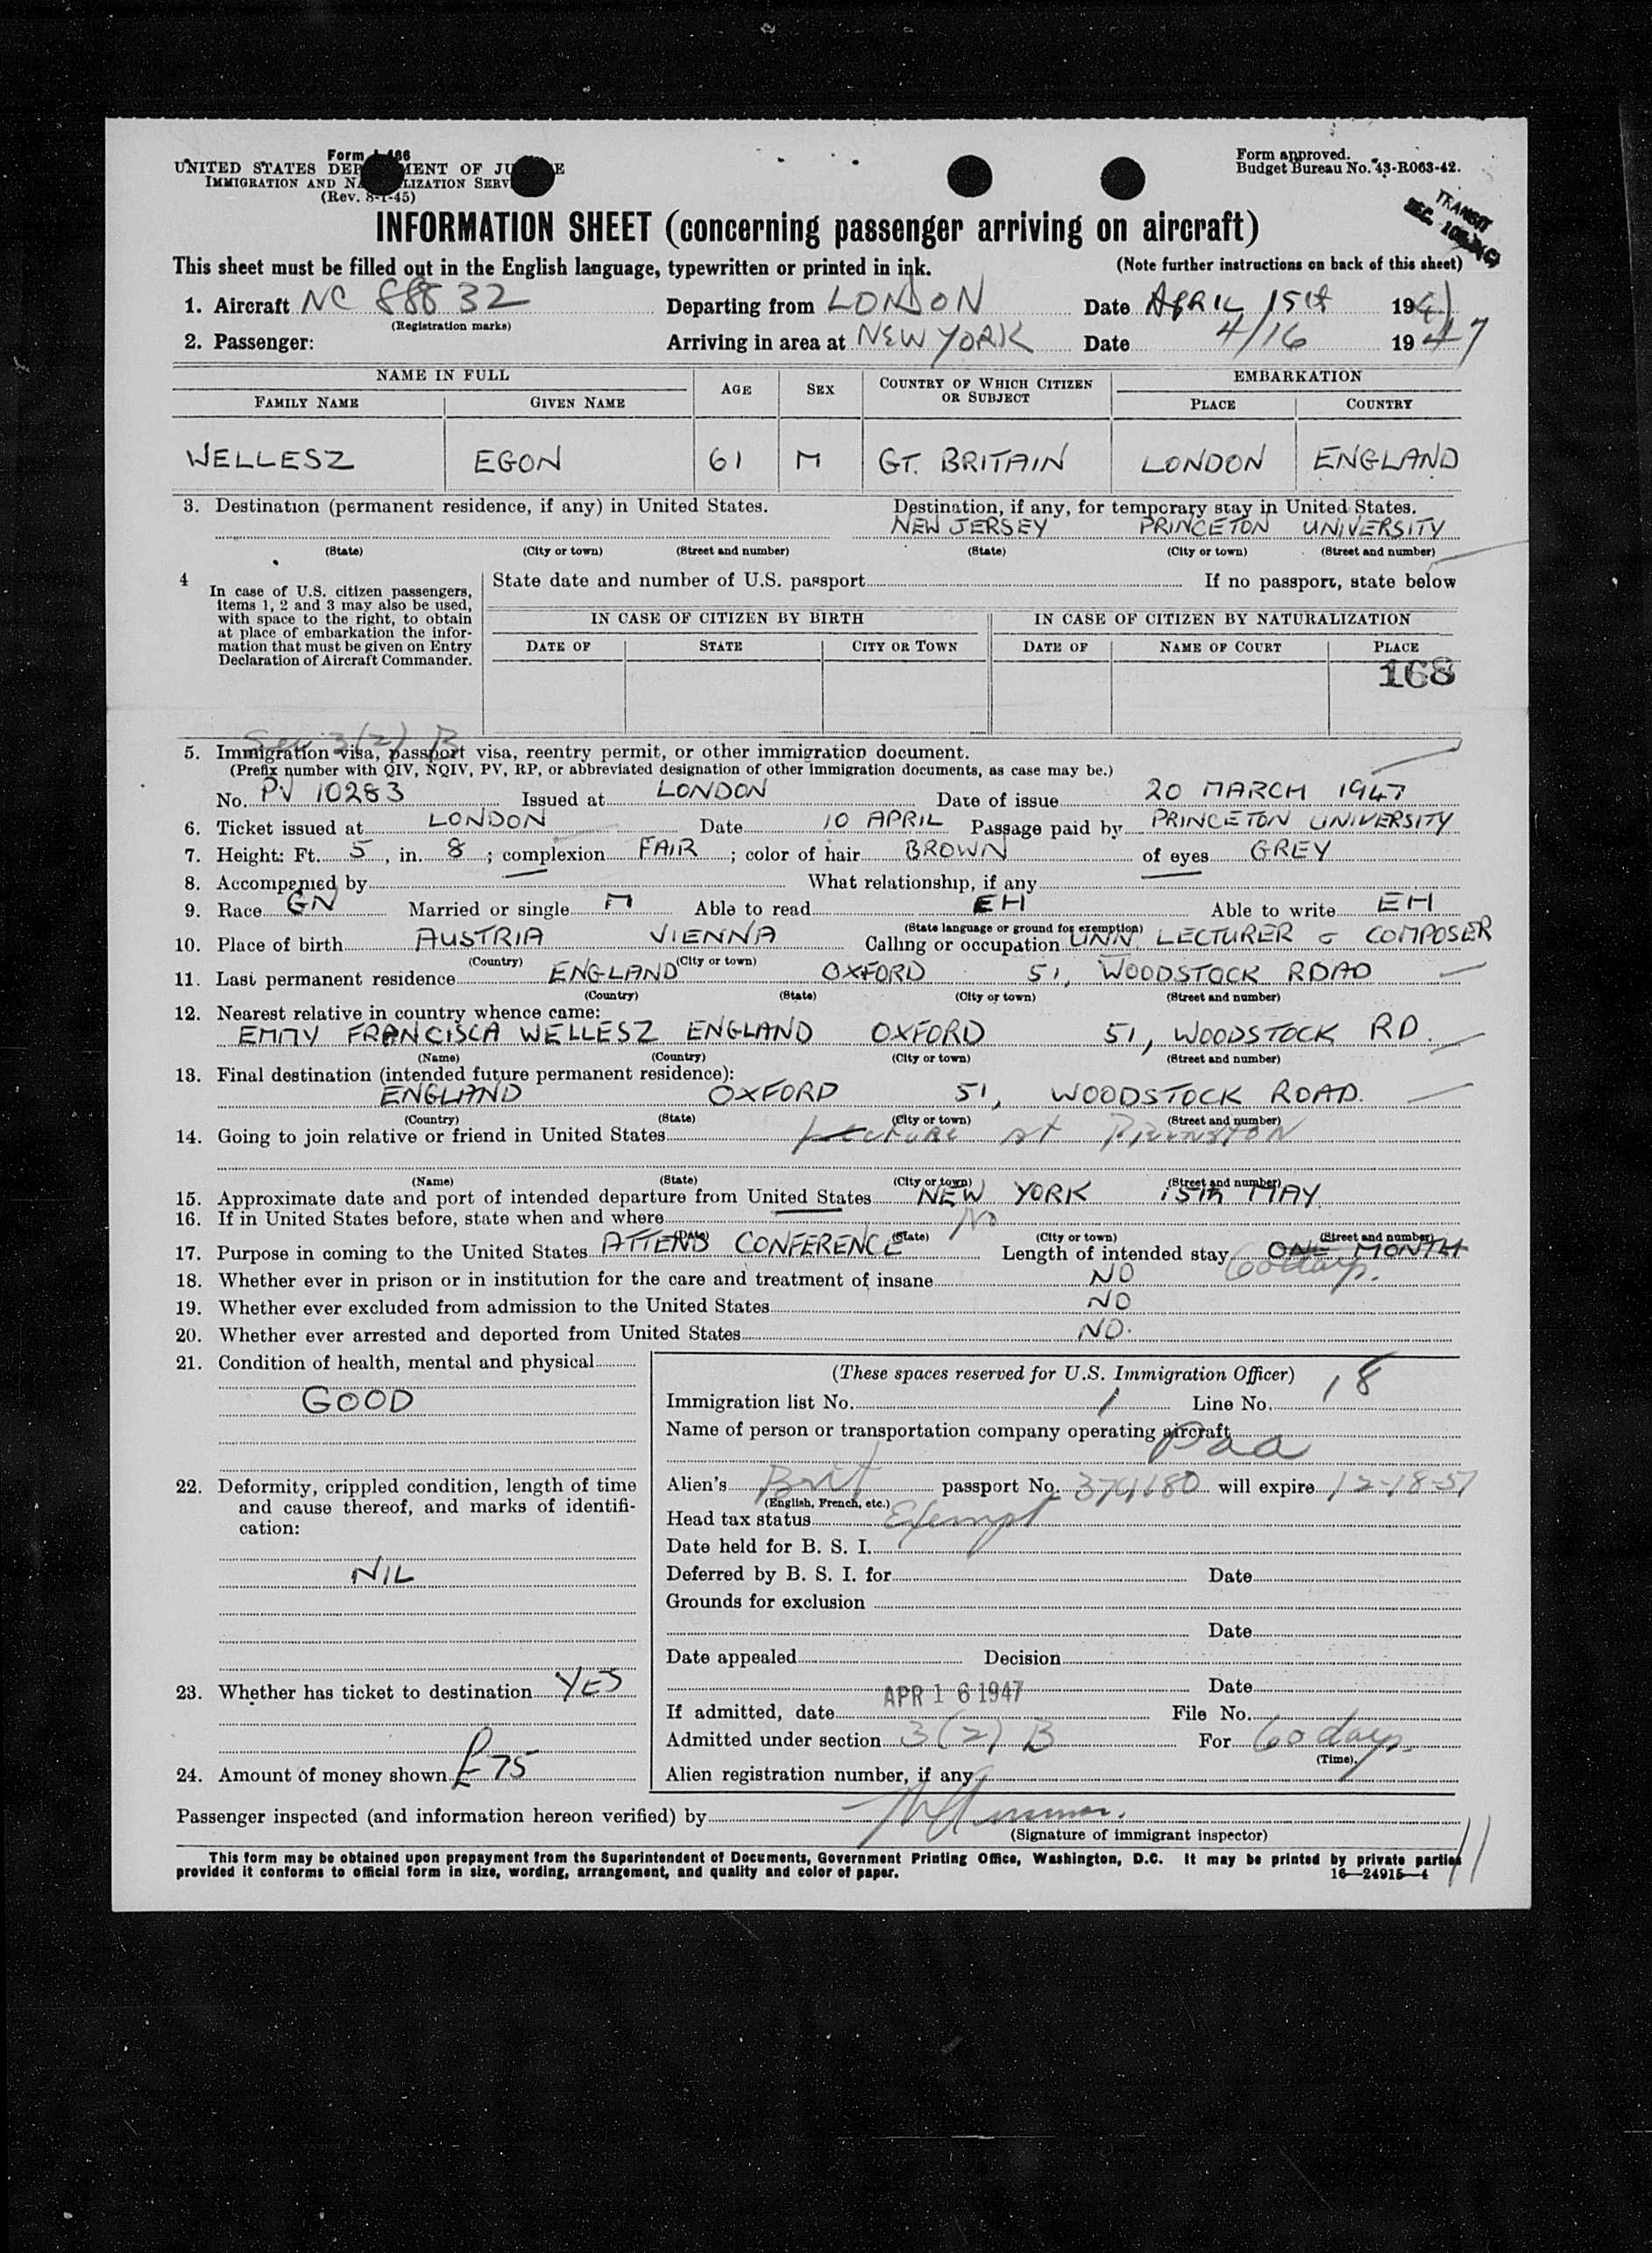 Form I-466
UNITED STATES DEPARTMENT OF JUSTICE
IMMIGRATION AND NATURALIZATION SERVICE
(Rev. 8-1-45)
Form approved.
Budget Bureau No. 43-R063-42.
TRANSIT
SEC.
INFORMATION SHEET (concerning passenger arriving on aircraft)
This sheet must be filled out in the English language, typewritten or printed in ink. (Note further instructions on back of this sheet)
1. Aircraft NC 88832 Departing from LONDON Date APRIL 15th 194
(Registration marks)
2. Passenger: Arriving in area at NEW YORK Date 4/16 1947
NAME IN FULL AGE SEX COUNTRY OF WHICH CITIZEN OR SUBJECT EMBARKATION
FAMILY NAME GIVEN NAME PLACE COUNTRY
WELLESZ EGON 61 M GT. BRITAIN LONDON ENGLAND
3. Destination (permanent residence, if any) in United States. Destination, if any, for temporary stay in United States.
NEW JERSEY PRINCETON UNIVERSITY
(State) (City or town) (Street and number) (State) (City or town) (Street and number)
4 In case of U.S. citizen passengers, items 1, 2 and 3 may also be used, with space to the right, to obtain at place of embarkation the information that must be given on Entry Declaration of Aircraft Commander.
State date and number of U.S. passport If no passport, state below
IN CASE OF CITIZEN BY BIRTH IN CASE OF CITIZEN BY NATURALIZATION
DATE OF STATE CITY OR TOWN DATE OF NAME OF COURT PLACE
168
Sec 3(2) B
5. Immigration visa, passport visa, reentry permit, or other immigration document.
(Prefix number with QIV, NQIV, PV, RP, or abbreviated designation of other immigration documents, as case may be.)
No. PV 10283 Issued at LONDON Date of issue 20 MARCH 1947
6. Ticket issued at LONDON Date 10 APRIL Passage paid by PRINCETON UNIVERSITY
7. Height: Ft. 5, in. 8; complexion FAIR; color of hair BROWN of eyes GREY
8. Accompanied by What relationship, if any
9. Race GN Married or single M Able to read EH Able to write EH
(State language or ground for exemption)
10. Place of birth AUSTRIA VIENNA Calling or occupation UNN. LECTURER & COMPOSER
(Country) (City or town)
11. Last permanent residence ENGLAND OXFORD 51, WOODSTOCK ROAD
(Country) (State) (City or town) (Street and number)
12. Nearest relative in country whence came:
EMMY FRANCISCA WELLESZ ENGLAND OXFORD 51, WOODSTOCK RD.
(Name) (Country) (City or town) (Street and number)
13. Final destination (intended future permanent residence):
ENGLAND OXFORD 51, WOODSTOCK ROAD.
(Country) (State) (City or town) (Street and number)
14. Going to join relative or friend in United States Lecture at PRINSTON
(Name) (State) (City or town) (Street and number)
15. Approximate date and port of intended departure from United States NEW YORK 15th MAY
16. If in United States before, state when and where No
(Date) (State) (City or town) (Street and number)
17. Purpose in coming to the United States ATTEND CONFERENCE Length of intended stay ONE MONTH 60 days.
18. Whether ever in prison or in institution for the care and treatment of insane NO
19. Whether ever excluded from admission to the United States NO
20. Whether ever arrested and deported from United States NO.
21. Condition of health, mental and physical
GOOD
22. Deformity, crippled condition, length of time and cause thereof, and marks of identification:
NIL
23. Whether has ticket to destination YES
24. Amount of money shown £75
(These spaces reserved for U.S. Immigration Officer)
Immigration list No. 1 Line No. 18
Name of person or transportation company operating aircraft Paa
Alien's Brit passport No. will expire 12-18-51
(English, French, etc.)
Head tax status Exempt
Date held for B. S. I.
Deferred by B. S. I. for Date
Grounds for exclusion
Date
Date appealed Decision
Date
If admitted, date APR 16 1947 File No.
Admitted under section 3(2) B For 60 days.
(Time)
Alien registration number, if any
Passenger inspected (and information hereon verified) by
(Signature of immigrant inspector)
This form may be obtained upon prepayment from the Superintendent of Documents, Government Printing Office, Washington, D.C. It may be printed by private parties
provided it conforms to official form in size, wording, arrangement, and quality and color of paper. 16—24915—4